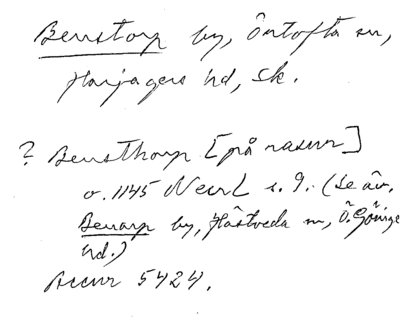 Benstorp by, Örtofta sn,
Harjagers hd, Sk.
? Bensthorp [på rasur]
o. 1145 NecrL s. 9. (Se äv.
Benarp by, Hästveda sn, Ö. Göinge
hd.)
Accnr 5424.